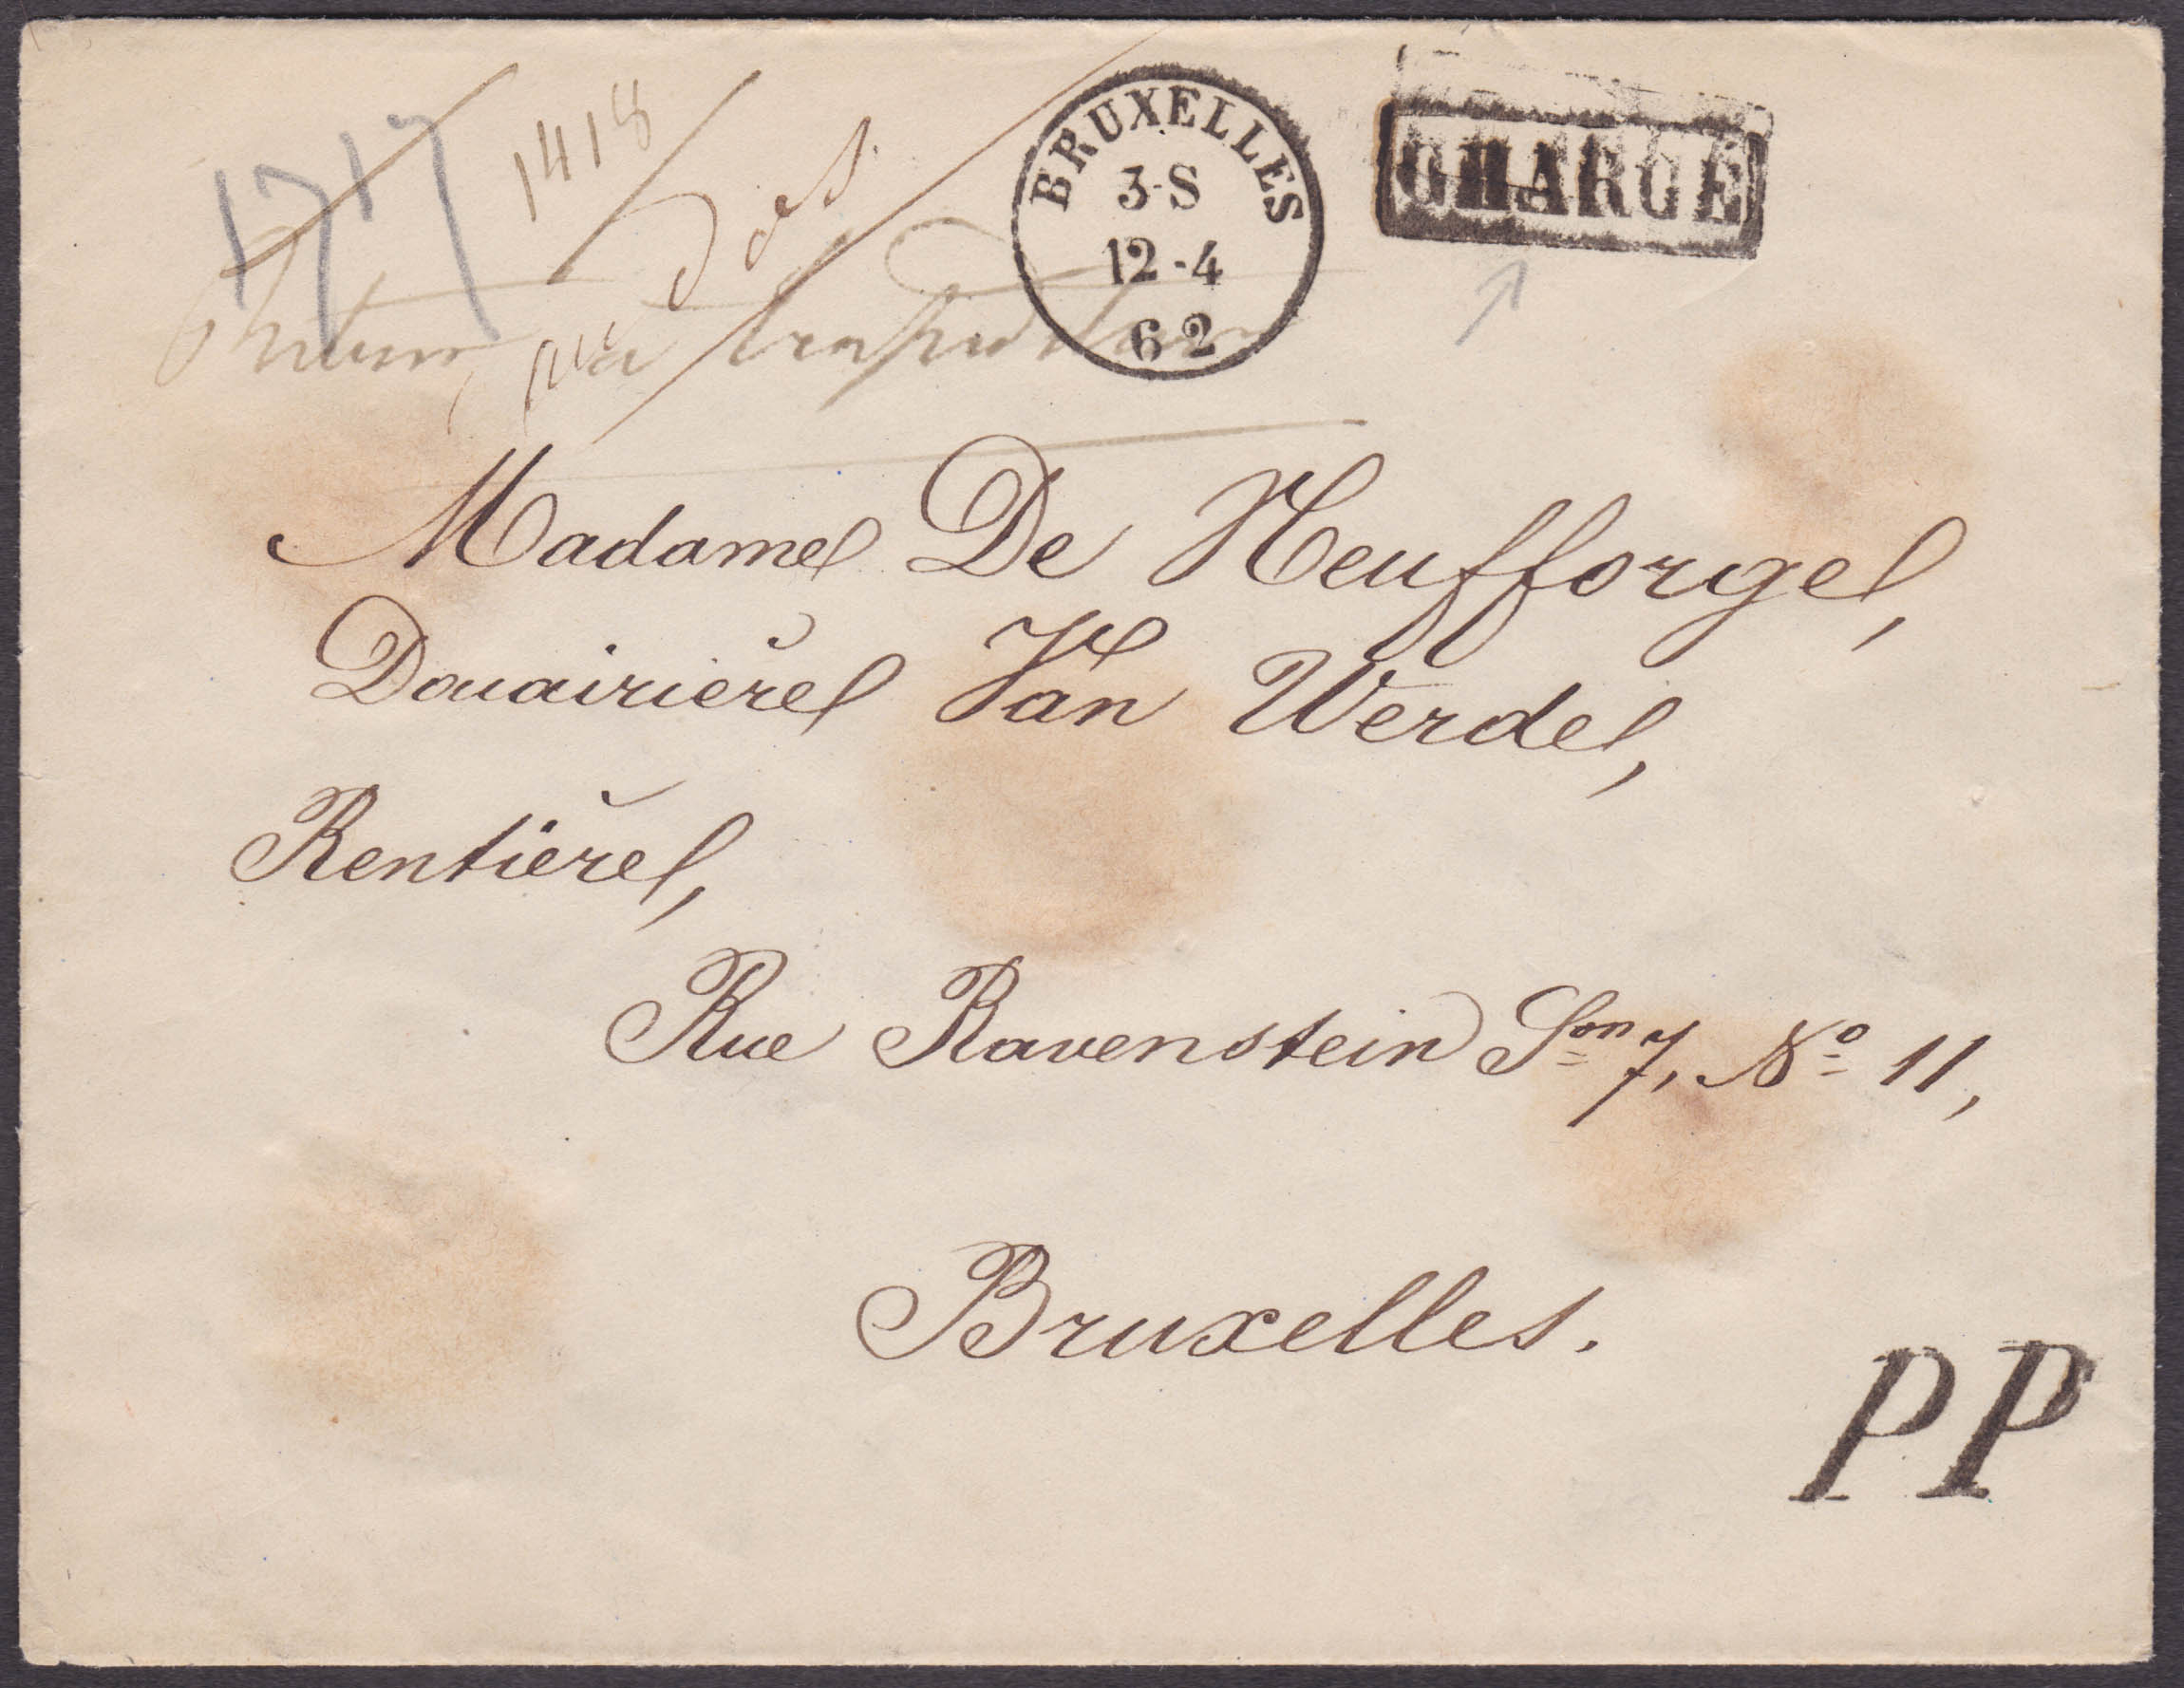 1717
1418
BRUXELLES
3-S
12-4
62
CHARGÉ
Madame De Neufforge,
Douairière Van Werde,
Rentière,
Rue Ravenstein Son 7, No 11,
Bruxelles.
PP